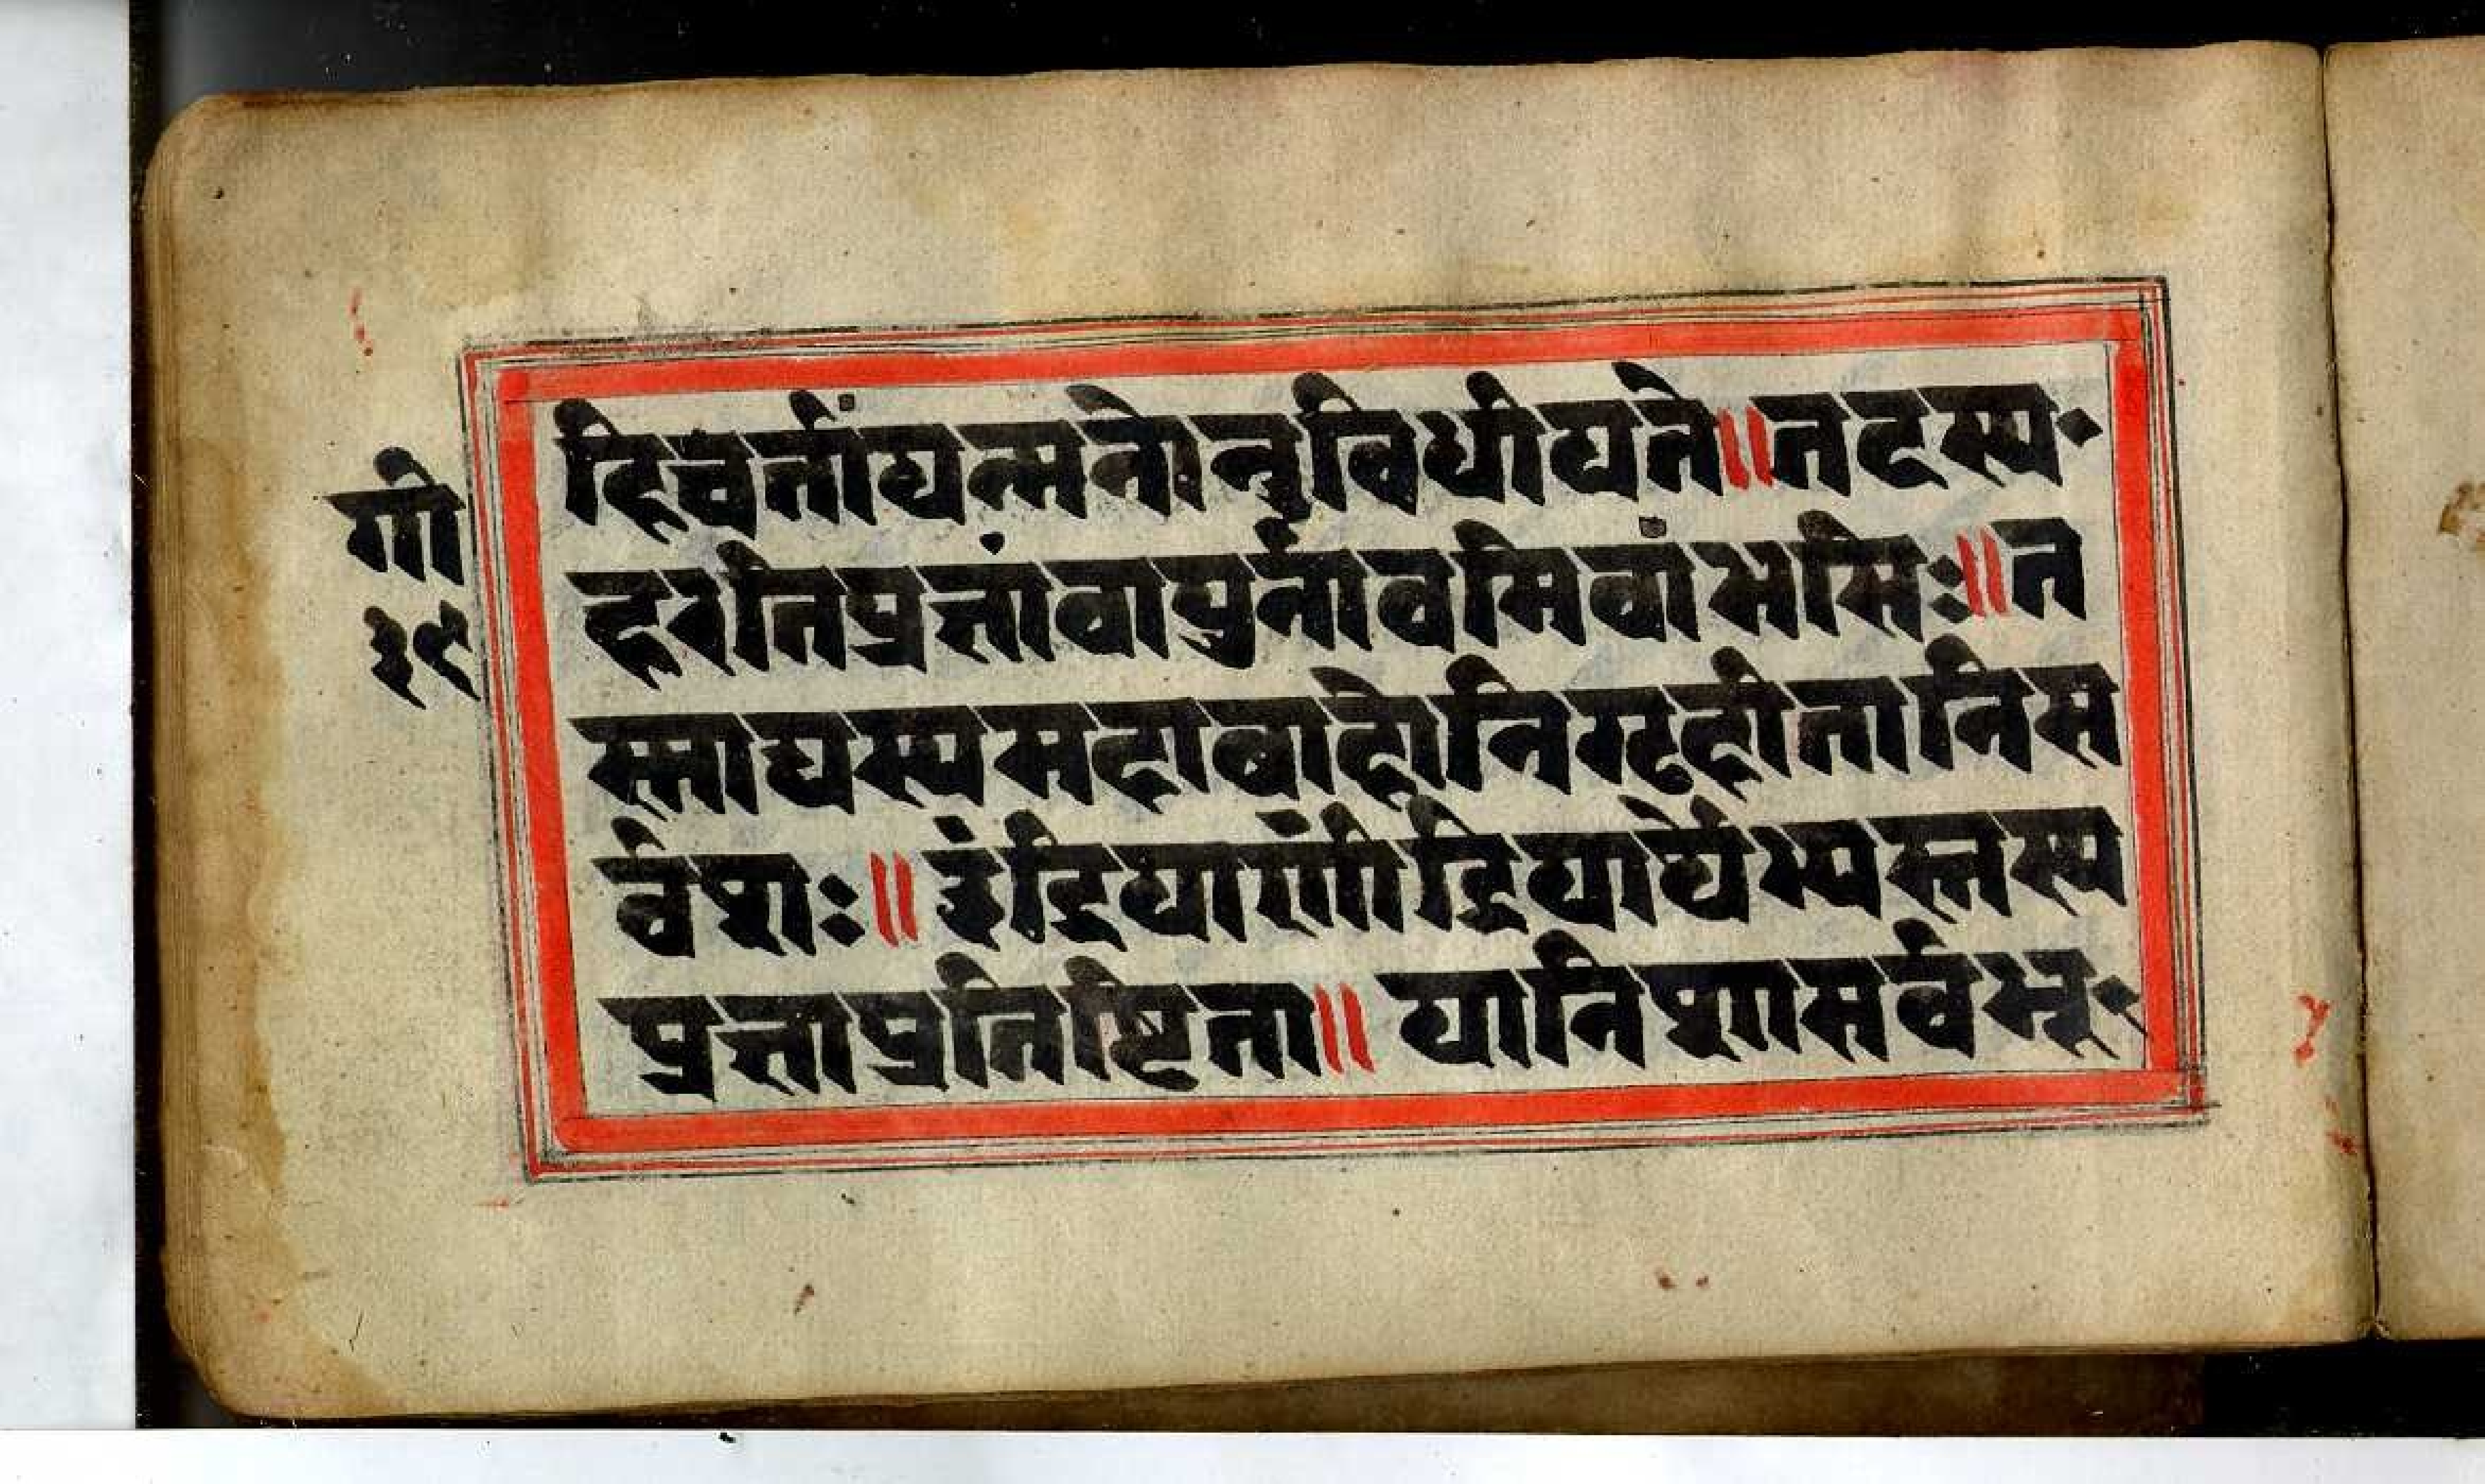 गी
२९
हि चर्त्तां यन्मनोनुविधीयते॥ तदस्य
हरति प्रज्ञां वायुर्नावमिवांभसिः॥ त
स्माद्यस्य महाबाहो निगृहीतानि स
र्वशः॥ इंद्रियाणींद्रियार्थेभ्यस्तस्य
प्रज्ञा प्रतिष्टिता॥ या निशा सर्वभू